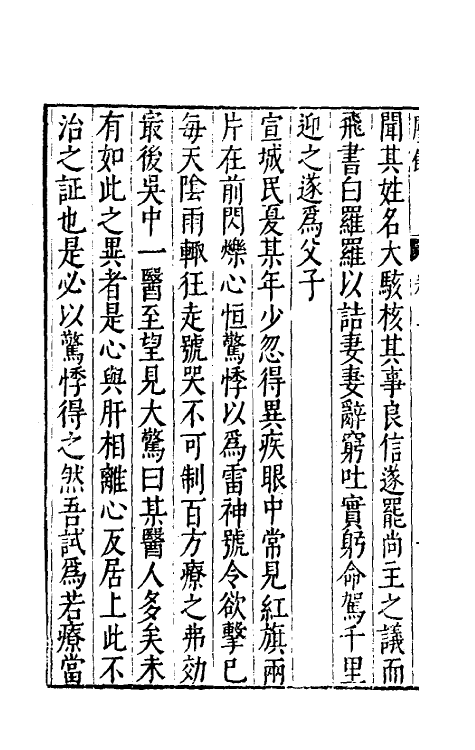 聞其姓名大駭核其事良信遂罷尚主之議而
飛書白羅羅以詰妻妻辭窮吐實躬命駕千里
迎之遂爲父子
宣城民憂某年少忽得異疾眼中常見紅旗兩
片在前閃爍心恒驚悸以爲雷神號令欲擊己
每天陰雨輙狂走號哭不可制百方療之弗効
最後吳中一醫至望見大驚曰某醫人多矣未
有如此之異者是心與肝相離心反居上此不
治之証也是必以驚悸得之然吾試爲若療當